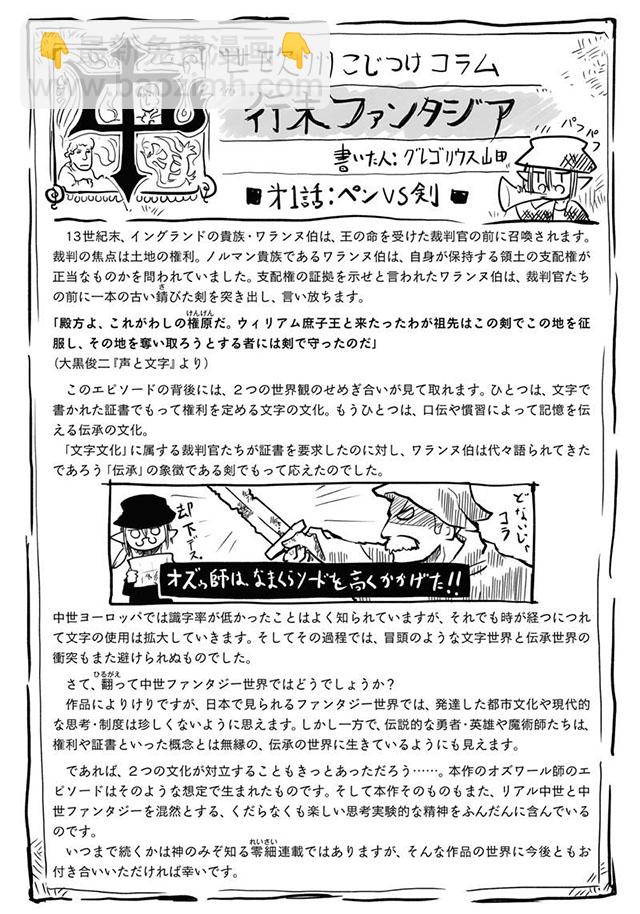 最新免费漫画
www.baozimh.com
こじつけ コラム
行末ファンタジア
書いた人：グレゴリウス山田
パフパフ
■ オ1話：ペンVS剣 ■
13世紀末、イングランドの貴族・ワランヌ伯は、王の命を受けた裁判官の前に召喚されます。
裁判の焦点は土地の権利。ノルマン貴族であるワランヌ伯は、自身が保持する領土の支配権が
正当なものかを問われていました。支配権の証拠を示せと言われたワランヌ伯は、裁判官たち
の前に一本の古い錆びた剣を突き出し、言い放ちます。
「殿方よ、これがわしの権原だ。ウィリアム庶子王と来たったわが祖先はこの剣でこの地を征
服し、その地を奪い取ろうとする者には剣で守ったのだ」
（大黒俊二『声と文字』より）
このエピソードの背後には、２つの世界観のせめぎ合いが見て取れます。ひとつは、文字で
書かれた証書でもって権利を定める文字の文化。もうひとつは、口伝や慣習によって記憶を伝
える伝承の文化。
「文字文化」に属する裁判官たちが証書を要求したのに対し、ワランヌ伯は代々語られてきた
であろう「伝承」の象徴である剣でもって応えたのでした。
却下デース
どないじゃコラ
オズゥ師は、なまくらソードを高くかかげた!!
中世ヨーロッパでは識字率が低かったことはよく知られていますが、それでも時が経つにつれ
て文字の使用は拡大していきます。そしてその過程では、冒頭のような文字世界と伝承世界の
衝突もまた避けられぬものでした。
さて、翻って中世ファンタジー世界ではどうでしょうか？
作品によりけりですが、日本で見られるファンタジー世界では、発達した都市文化や現代的
な思考・制度は珍しくないように思えます。しかし一方で、伝説的な勇者・英雄や魔術師たちは、
権利や証書といった概念とは無縁の、伝承の世界に生きているようにも見えます。
であれば、２つの文化が対立することもきっとあっただろう……。本作のオズワール師のエ
ピソードはそのような想定で生まれたものです。そして本作そのものもまた、リアル中世と中
世ファンタジーを混然とする、くだらなくも楽しい思考実験的な精神をふんだんに含んでいる
のです。
いつまで続くかは神のみぞ知る零細連載ではありますが、そんな作品の世界に今後ともお
付き合いいただければ幸いです。